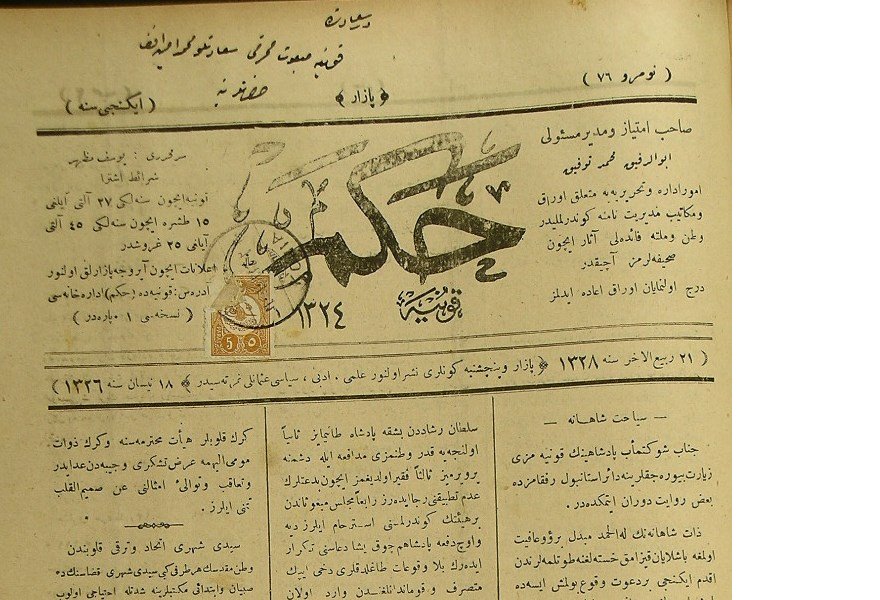 در سعادت
قونیه مبعوث محترمی سعادتلو محمد امین افندی
حضرتلرینه
( نومرو ٧٦ )
﴿ بازار ﴾
( ایکنجی سنه )
صاحب امتیاز و مدیر مسئولی
ابوالرفیق محمد توفیق
امور اداره و تحریریه یه متعلق اوراق
و مکاتیب مدیریت نامنه کوندرلملیدر
وطن و ملته فائده لی آثار ایچون
صحیفه لرمز آچیقدر
درج اولنمایان اوراق اعاده ایدلمز
حكم
قونیه
١٣٢٤
KONIA
5 ٥
سرمحرری : یوسف مظهر
شرائط اشترا
قونیه ایچون سنه لکی ٢٧ آلتی آیلغی
١٥ طشره ایچون سنه لکی ٤٥ آلتی
آیلغی ٢٥ غروشدر
اعلانات ایچون آیروجه بازارلق اولنور
آدرس : قونیه ده (حکم) اداره خانه سی
( نسخه سی ١٠ پاره در )
( ٢١ ربیع الاخر سنه ١٣٢٨ ﴿ بازار و پنجشنبه کونلری نشر اولنور علمی ، ادبی ، سیاسی عثمانلی غزته سیدر ﴾ ١٨ نیسان سنه ١٣٢٦ )
— سیاحت شاهانه —
جناب شوکتمأب پادشاهینك قونیه مزی
زیارت بیوره جقلرینه دائر استانبول رفقامزده
بعض روایت دوران ایتمکده در .
ذات شاهانه نك له الحمد مبدل برؤ و عافیت
اولمغه باشلایان قیزامق خسته لغنه طوتلمه لرندن
اقدم ایکنجی بر دعوت وقوع بولمش ایسه ده
سلطان رشاددن بشقه پادشاه طانیمایز ثانیاً
اولنجه یه قدر وطنمزی مدافعه ایله دشمنه
یر ویرمیز ثالثاً فقیر اولدیغمز ایچون بدعتلرك
عدم تطبیقنی رجا ایده رز رابعاً مجلس مبعوثاندن
بر هیئتك کوندرلمسنی استرحام ایلرز دیه
و اوچ دفعه پادشاهم چوق یشا دعاسنی تکرار
ایده رك بلا وقوعات طاغلدقلری دخی ایپك
متصرف و قوماندانلغندن وارد اولان
کرك قلوبلر هیأت محترمه سنه و کرك ذوات
مومی الیهمه عرض تشکری وجیبه دن عد ایدر
و تعاقب و توالئ امثالنی عن صمیم القلب
تمنی ایلرز .
سیدی شهری اتحاد و ترقی قلوبندن
وطن مقدسك هر طرفی کبی سیدی شهری قضاسنك ده
صبیان و ابتدائی مکتبلرینه شدتله احتیاجی اولوب